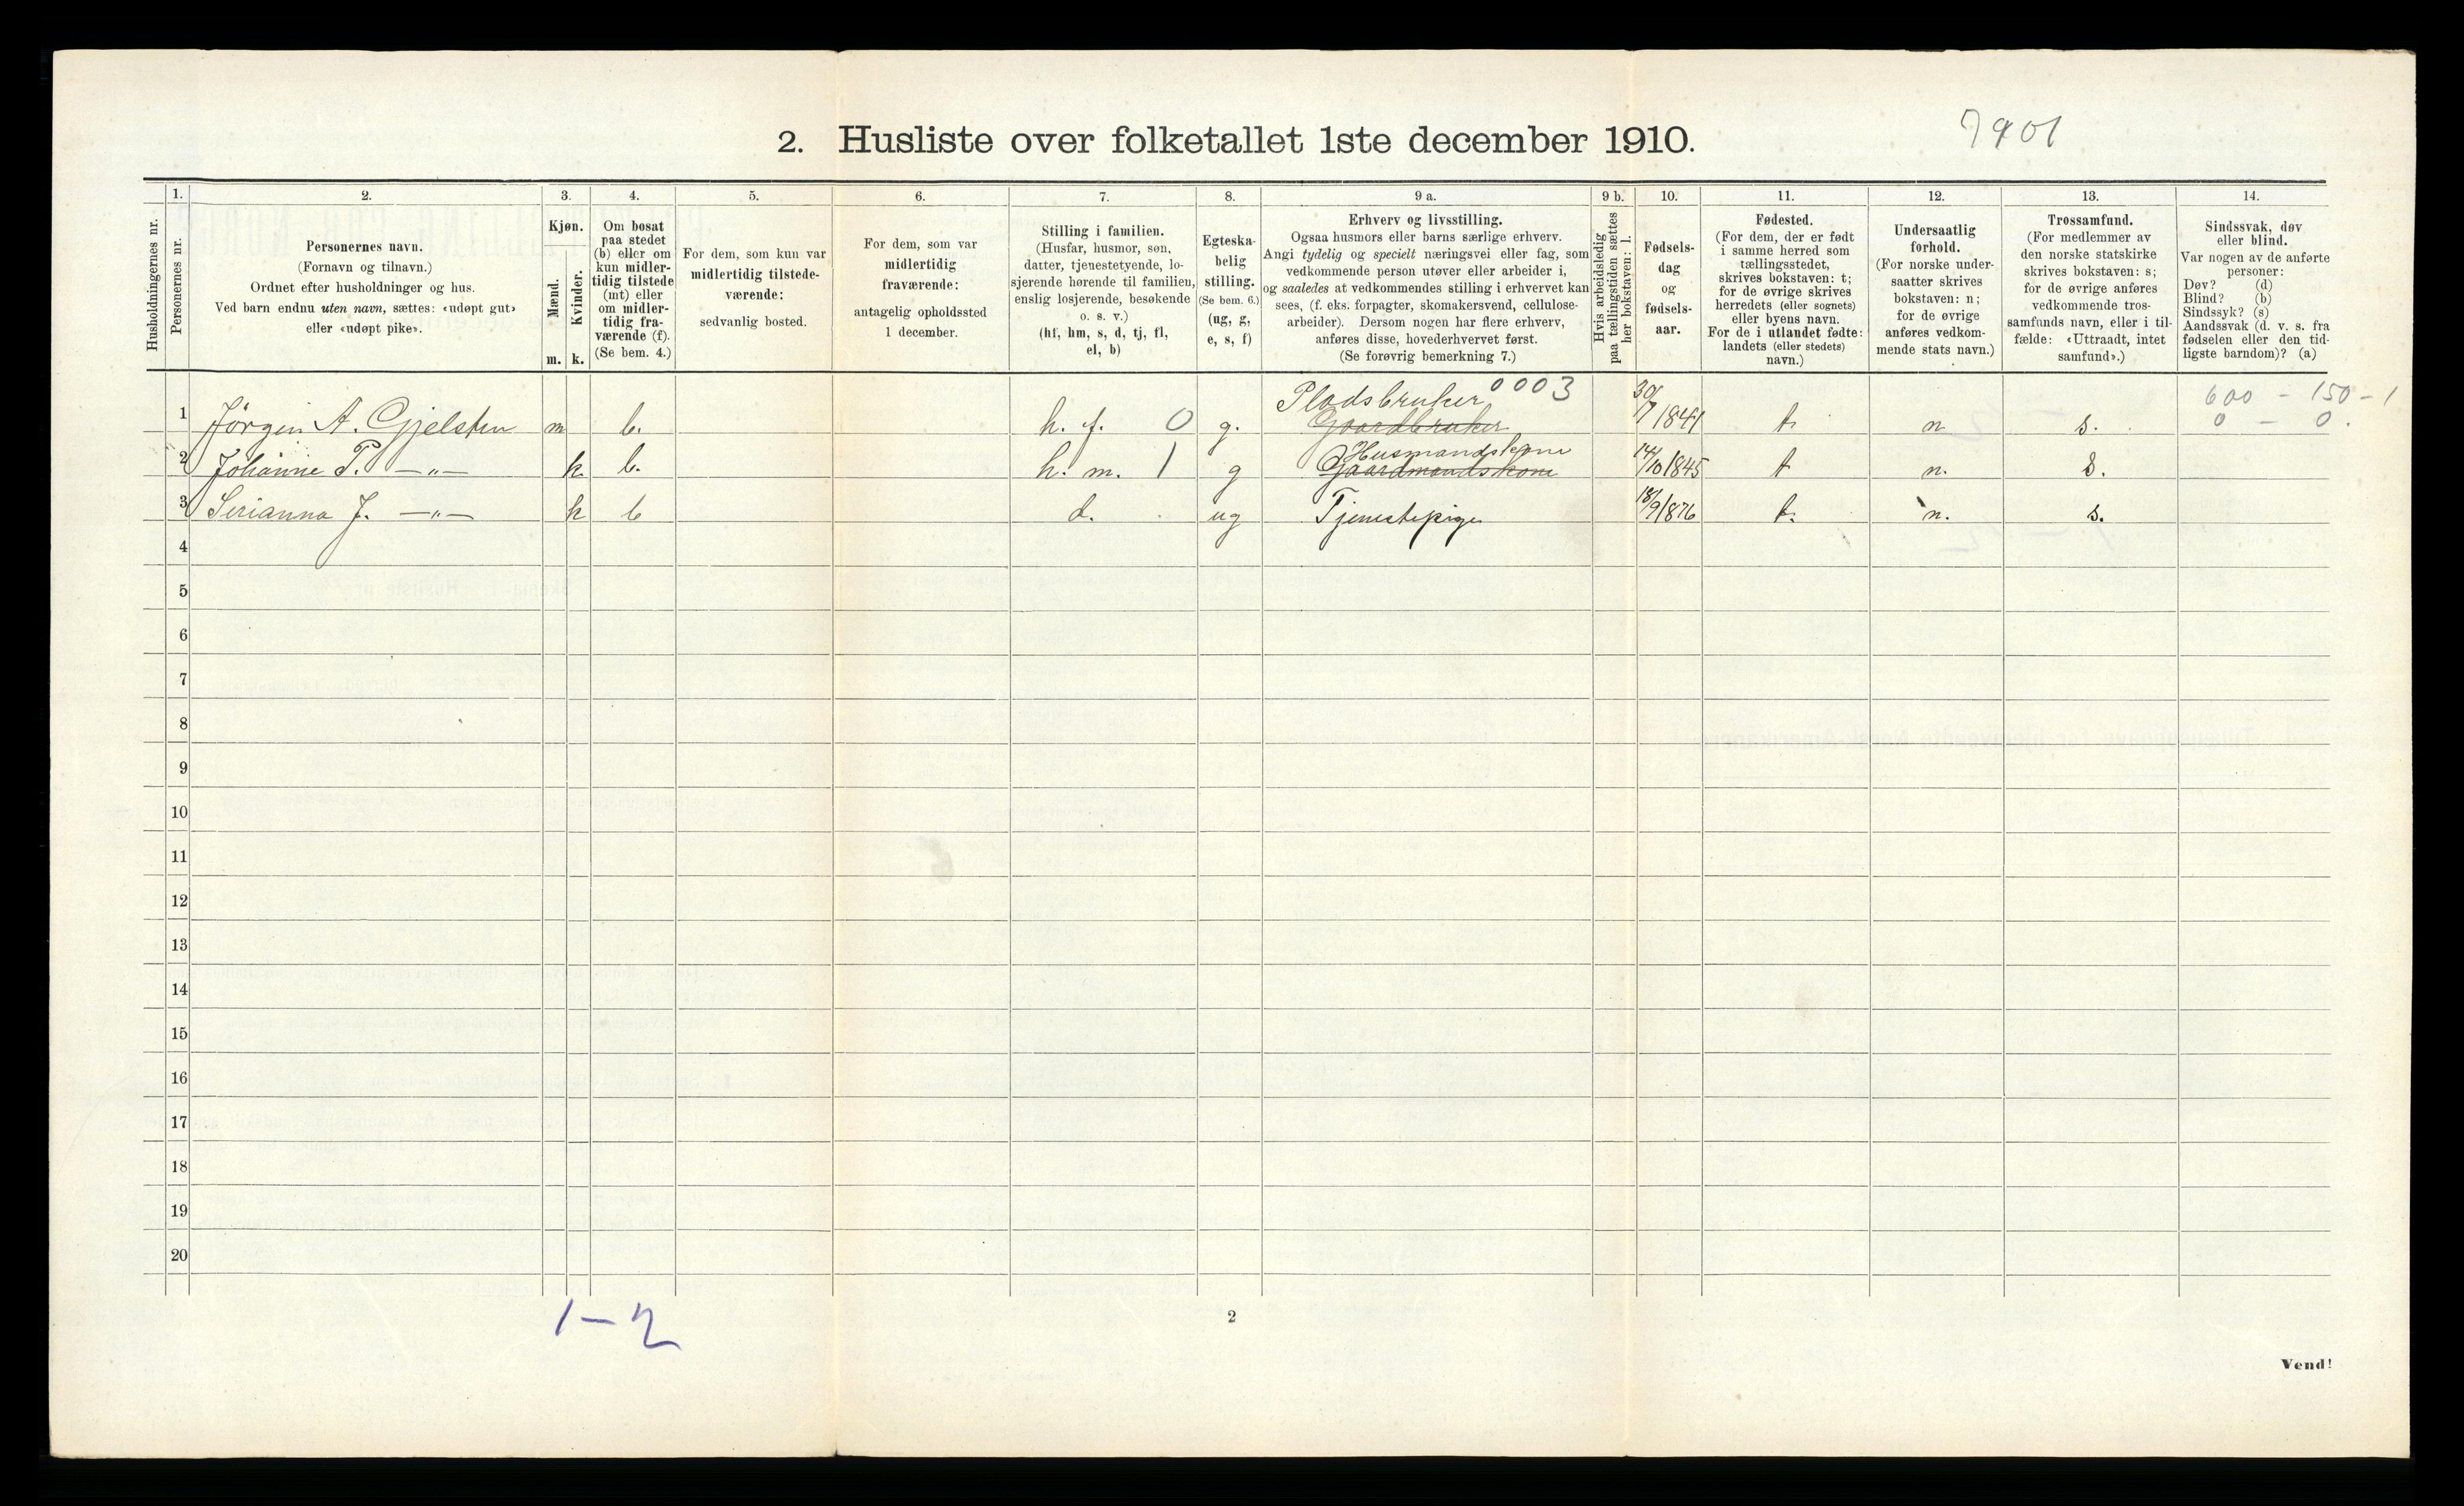 7901
2. Husliste over folketallet 1ste december 1910.
Husholdningernes nr.
1.
Personernes nr.
2.
Personernes navn.
(Fornavn og tilnavn.)
Ordnet efter husholdninger og hus.
Ved barn endnu uten navn, sættes: «udøpt gut»
eller «udøpt pike».
3.
Kjøn.
Mænd.
Kvinder.
m.
k.
4.
Om bosat
paa stedet
(b) eller om
kun midler-
tidig tilstede
(mt) eller
om midler-
tidig fra-
værende (f).
(Se bem. 4.)
5.
For dem, som kun var
midlertidig tilstede-
værende:
sedvanlig bosted.
6.
For dem, som var
midlertidig
fraværende:
antagelig opholdssted
1 december.
7.
Stilling i familien.
(Husfar, husmor, søn,
datter, tjenestetyende, lo-
sjerende hørende til familien,
enslig losjerende, besøkende
o. s. v.)
(hf, hm, s, d, tj, fl,
el, b)
8.
Egteska-
belig
stilling.
(Se bem. 6.)
(ug, g,
e, s, f)
9 a.
Erhverv og livsstilling.
Ogsaa husmors eller barns særlige erhverv.
Angi tydelig og specielt næringsvei eller fag, som
vedkommende person utøver eller arbeider i,
og saaledes at vedkommendes stilling i erhvervet kan
sees, (f. eks. forpagter, skomakersvend, cellulose-
arbeider). Dersom nogen har flere erhverv,
anføres disse, hovederhvervet først.
(Se forøvrig bemerkning 7.)
9 b.
Hvis arbeidsledig
paa tællingstiden sættes
her bokstaven: l.
10.
Fødsels-
dag
og
fødsels-
aar.
11.
Fødested.
(For dem, der er født
i samme herred som
tællingsstedet,
skrives bokstaven: t;
for de øvrige skrives
herredets (eller sognets)
eller byens navn.
For de i utlandet fødte:
landets (eller stedets)
navn.)
12.
Undersaatlig
forhold.
(For norske under-
saatter skrives
bokstaven: n;
for de øvrige
anføres vedkom-
mende stats navn.)
13.
Trossamfund.
(For medlemmer av
den norske statskirke
skrives bokstaven: s;
for de øvrige anføres
vedkommende tros-
samfunds navn, eller i til-
fælde: «Uttraadt, intet
samfund».)
14.
Sindssvak, døv
eller blind.
Var nogen av de anførte
personer:
Døv? (d)
Blind? (b)
Sindssyk? (s)
Aandssvak (d. v. s. fra
fødselen eller den tid-
ligste barndom)? (a)
Pladsbruker 0003 600 - 150 - 1
1 Jørgen A. Gjelsten m b. h. f. 0 g. Gaardbruker 30/7 1841 t. n s. 0 - 0.
Husmandskone
2 Johanne P. —"— k. b. h. m. 1 g Gaardmandskone 14/10 1845 t n. s.
3 Serianna J. —"— k b d. ug Tjenestepige 18/9 1876 t. n. s.
4
5
6
7
8
9
10
11
12
13
14
15
16
17
18
19
20
1-2
2
Vend!